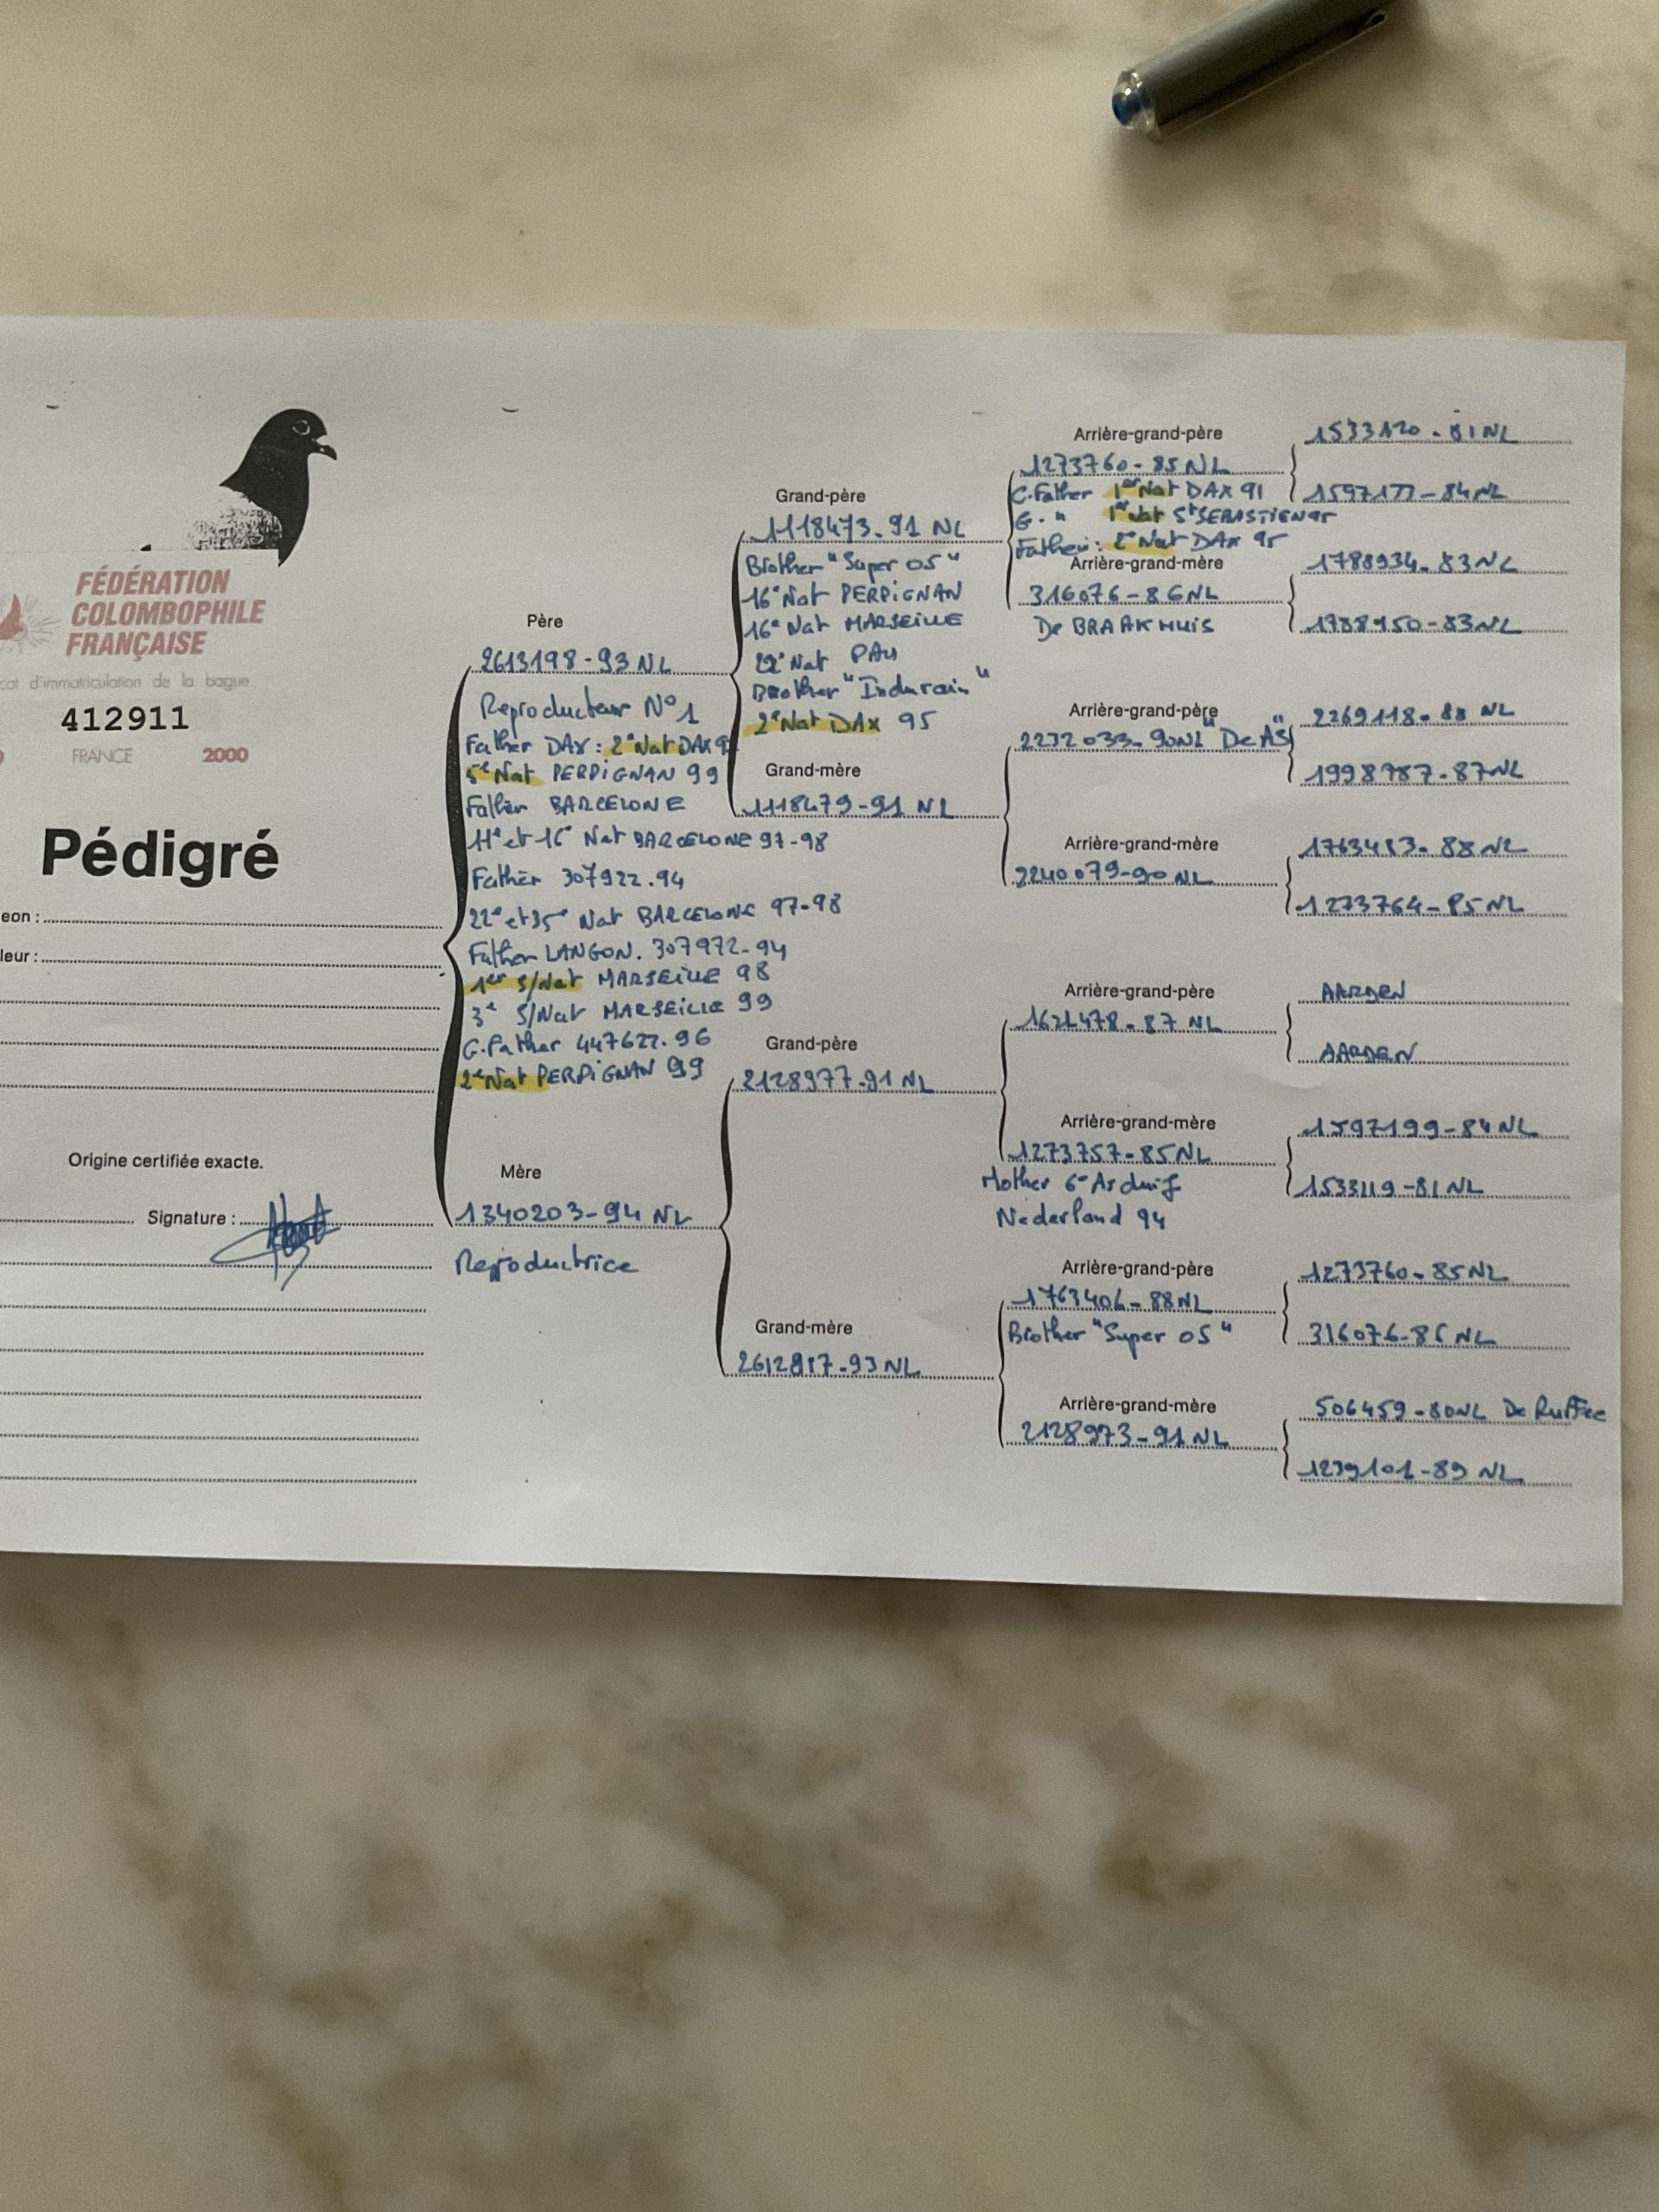 FÉDÉRATION
COLOMBOPHILE
FRANÇAISE
d'immatriculation de la bague
412911
FRANCE 2000
Pédigré
Origine certifiée exacte.
Signature :
Père
2613198-93 NL
Reproducteur N°1
Father DAX : 2e Nat DAX
5e Nat PERPIGNAN 99
Father BARCELONE
11e et 16e Nat BARCELONE 97-98
Father 307922.94
22e et 35e Nat BARCELONE 97-98
Father LANGON. 307972-94
1er S/Nat MARSEILLE 98
3e S/Nat MARSEILLE 99
G.Father 447627.96
2e Nat PERPIGNAN 99
Mère
1340203-94 NL
Reproductrice
Grand-père
1118473-91 NL
Brother "Super 05"
16e Nat PERPIGNAN
16e Nat MARSEILLE
22e Nat PAU
Brother "Indurain"
2e Nat DAX 95
Grand-mère
1118479-91 NL
Grand-père
2128977-91 NL
Grand-mère
2612817-93 NL
Arrière-grand-père
1273760-85 NL
G.Father 1er Nat DAX 91
G. " 1er Nat St SEBASTIEN 95
Father : 2e Nat DAX 95
Arrière-grand-mère
316076-86 NL
De BRAAKHUIS
Arrière-grand-père
2232033-90 NL "De AS"
Arrière-grand-mère
2240079-90 NL
Arrière-grand-père
1621478-87 NL
Arrière-grand-mère
1273757-85 NL
Mother 6e Asduif
Nederland 94
Arrière-grand-père
1763406-88 NL
Brother "Super 05"
Arrière-grand-mère
2128973-91 NL
1533120-81 NL
1597177-84 NL
1788934-83 NL
1788950-83 NL
2269118-88 NL
1998787-87 NL
1763483-88 NL
1273764-85 NL
AARDEN
AARDEN
1597199-84 NL
1533119-81 NL
1273760-85 NL
316076-86 NL
506459-80 NL De Ruffec
1239101-89 NL